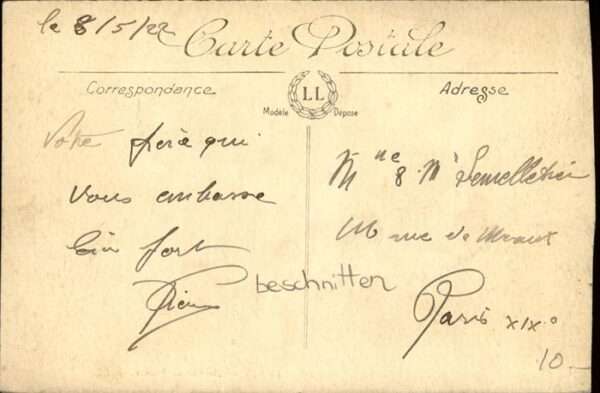 le 8/5/22
Carte Postale
Correspondance
LL
Adresse
Modèle Déposé
Votre père qui
vous embrasse
bien fort
Pierre
beschnitten
Mme & Mr
rue de Meaux
Paris XIXe
10.-